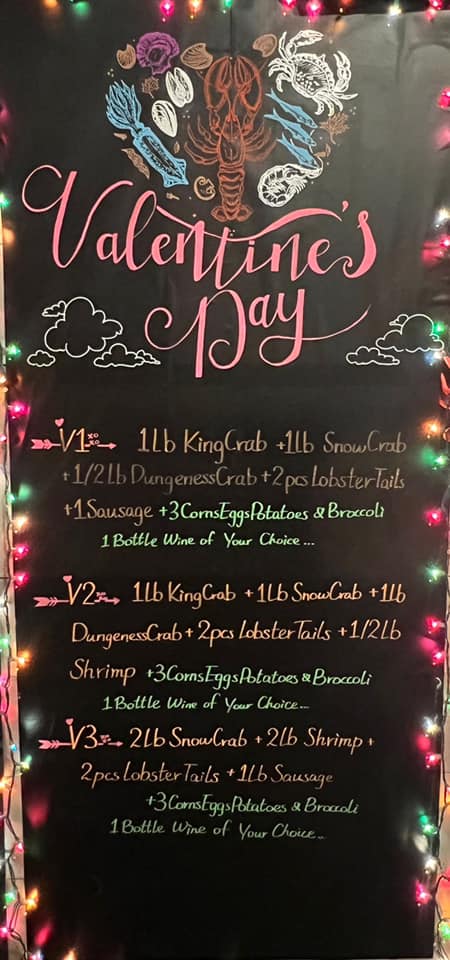 Valentine's
Day
V1 xoxo 1Lb KingCrab +1Lb SnowCrab
+1/2Lb DungenessCrab +2pcs LobsterTails
+1Sausage +3CornsEggsPotatoes & Broccoli
1 Bottle Wine of Your Choice...
V2 1Lb KingCrab +1Lb SnowCrab +1Lb
DungenessCrab + 2pcs LobsterTails +1/2Lb
Shrimp +3CornsEggsPotatoes & Broccoli
1 Bottle Wine of Your Choice...
V3 2Lb SnowCrab +2Lb Shrimp +
2pcs LobsterTails +1Lb Sausage
+3CornsEggsPotatoes & Broccoli
1 Bottle Wine of Your Choice...